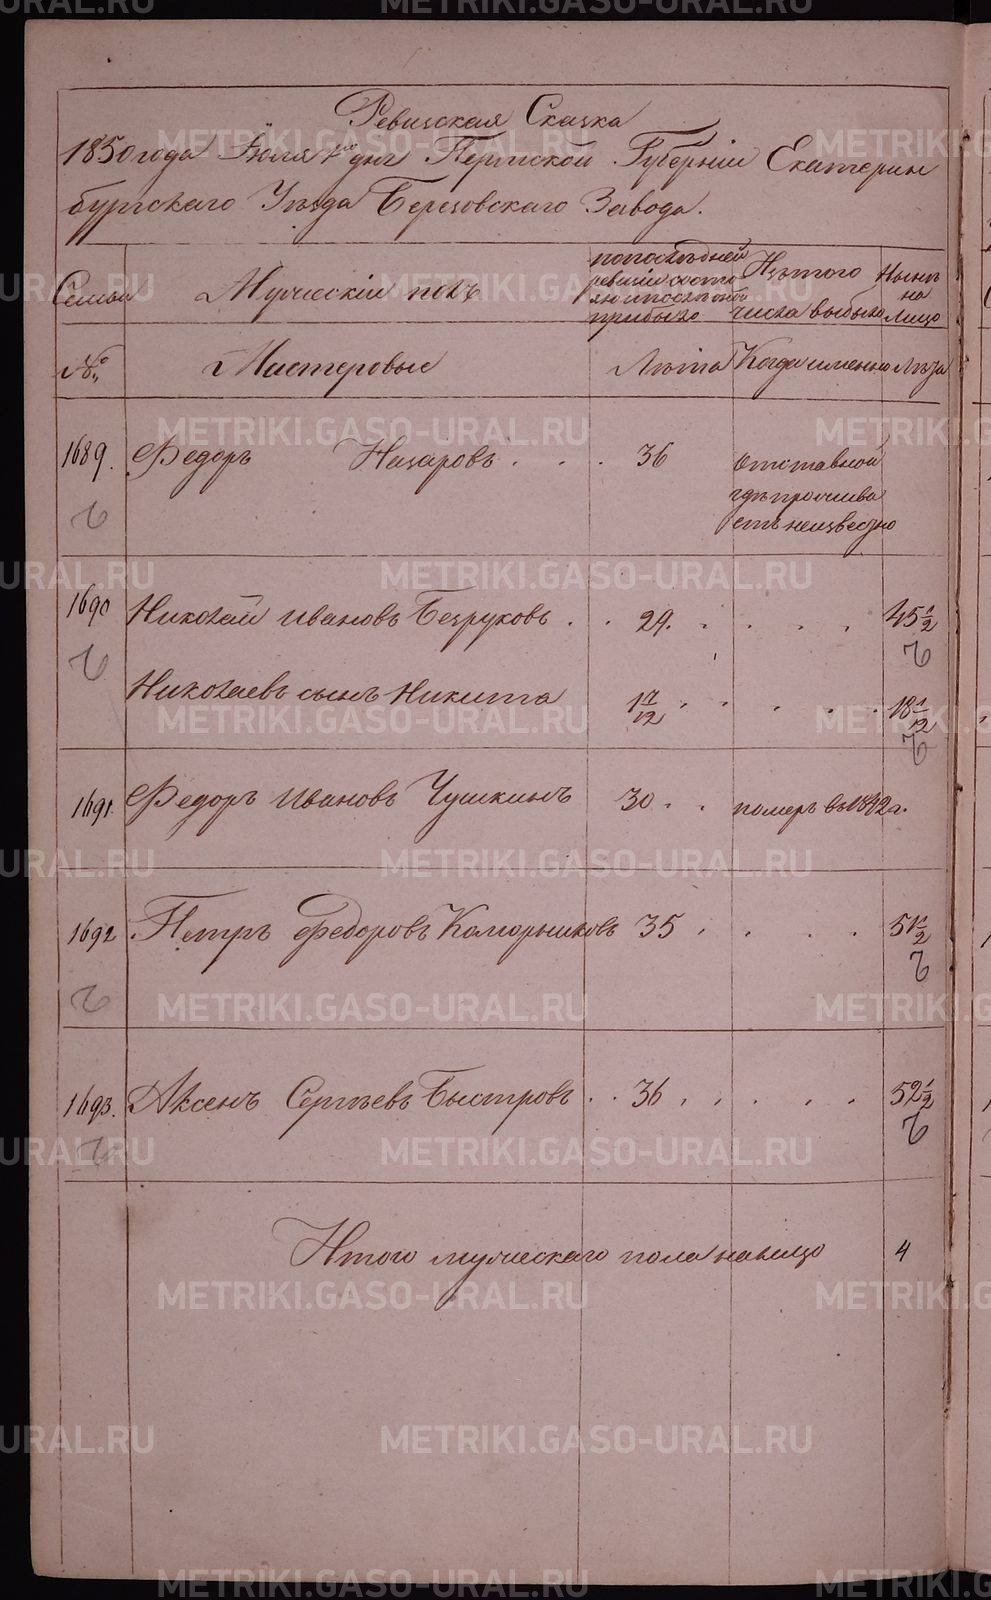 Ревизская Сказка
1850 года Июля 1го дня Пермской Губерніи Екатерин
бургскаго Уѣзда Березовскаго Завода.
Семьи
Мужескій полъ
по послѣдней
ревизіи состо
яло и послѣ оной
прибыло
Изъ того
числа выбыло
Нынѣ
на
лицо
№
Мастеровые
Лѣта
Когда именно
Лѣта
1689. Федоръ Назаровъ . . . 36 отставной
гдѣ прожива
етъ неизвестно
1690 Николай Ивановъ Безруковъ . . 29. . . . . 45 1/2
Николаевъ сынъ Никита 1 7/12 . . . . . 18 1/12
1691. Федоръ Ивановъ Чушкинъ 30 . . померъ въ 1842 г.
1692 Петръ Федоровъ Каморниковъ 35 . . . . 51 1/2
1693. Аксенъ Сергѣевъ Быстровъ . . 36 . . . . . 52 1/2
Итого мужескаго пола налицо 4
METRIKI.GASO-URAL.RU